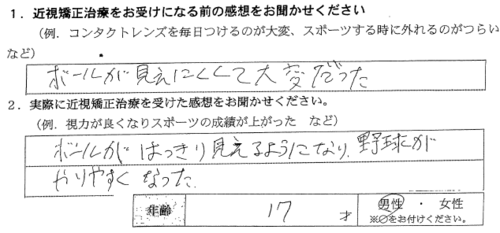 1．近視矯正治療をお受けになる前の感想をお聞かせください
（例．コンタクトレンズを毎日つけるのが大変、スポーツする時に外れるのがつらい
など）
ボールが見えにくくて大変だった
2．実際に近視矯正治療を受けた感想をお聞かせください。
（例．視力が良くなりスポーツの成績が上がった　など）
ボールがはっきり見えるようになり、野球が
やりやすくなった。
年齢　17　才　男性　・　女性
※○をお付けください。